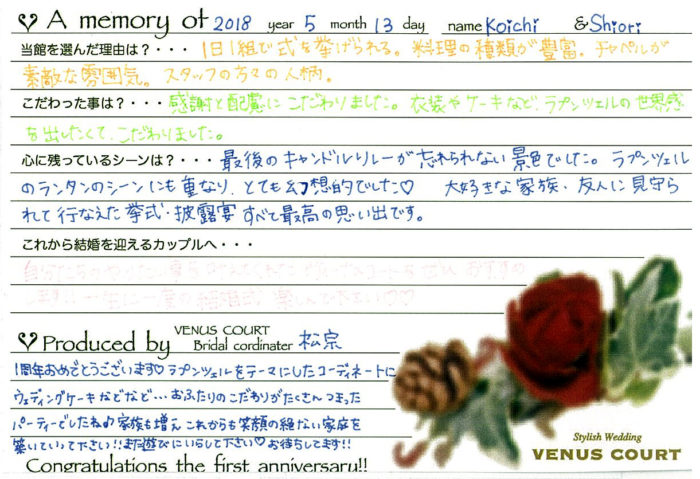 A memory of 2018 year 5 month 13 day name Koichi & Shiori
当館を選んだ理由は？・・・ 1日1組で式を挙げられる。料理の種類が豊富。チャペルが
素敵な雰囲気。スタッフの方々の人柄。
こだわった事は？・・・感謝と配慮にこだわりました。衣装やケーキなど、ラプンツェルの世界感
を出したくて、こだわりました。
心に残っているシーンは？・・・最後のキャンドルリレーが忘れられない景色でした。ラプンツェル
のランタンのシーンにも重なり、とても幻想的でした♡ 大好きな家族、友人に見守ら
れて行なえた挙式・披露宴すべて最高の思い出です。
これから結婚を迎えるカップルへ・・・
自分たちのやりたい事を叶えてくれた ヴィーナスコートをぜひ おすすめ
します!! 一生に一度の結婚式 楽しんで下さい♡♡
Produced by VENUS COURT Bridal cordinater 松宗
1周年おめでとうございます♡ラプンツェルをテーマにしたコーディネートに
ウェディングケーキなどなど…おふたりのこだわりがたくさんつまった
パーティーでしたね♪家族も増えこれからも笑顔の絶ない家庭を
築いていって下さい!!また遊びにいらして下さい♡お待ちしてます!!
Congratulations the first anniversary!!
Stylish Wedding
VENUS COURT